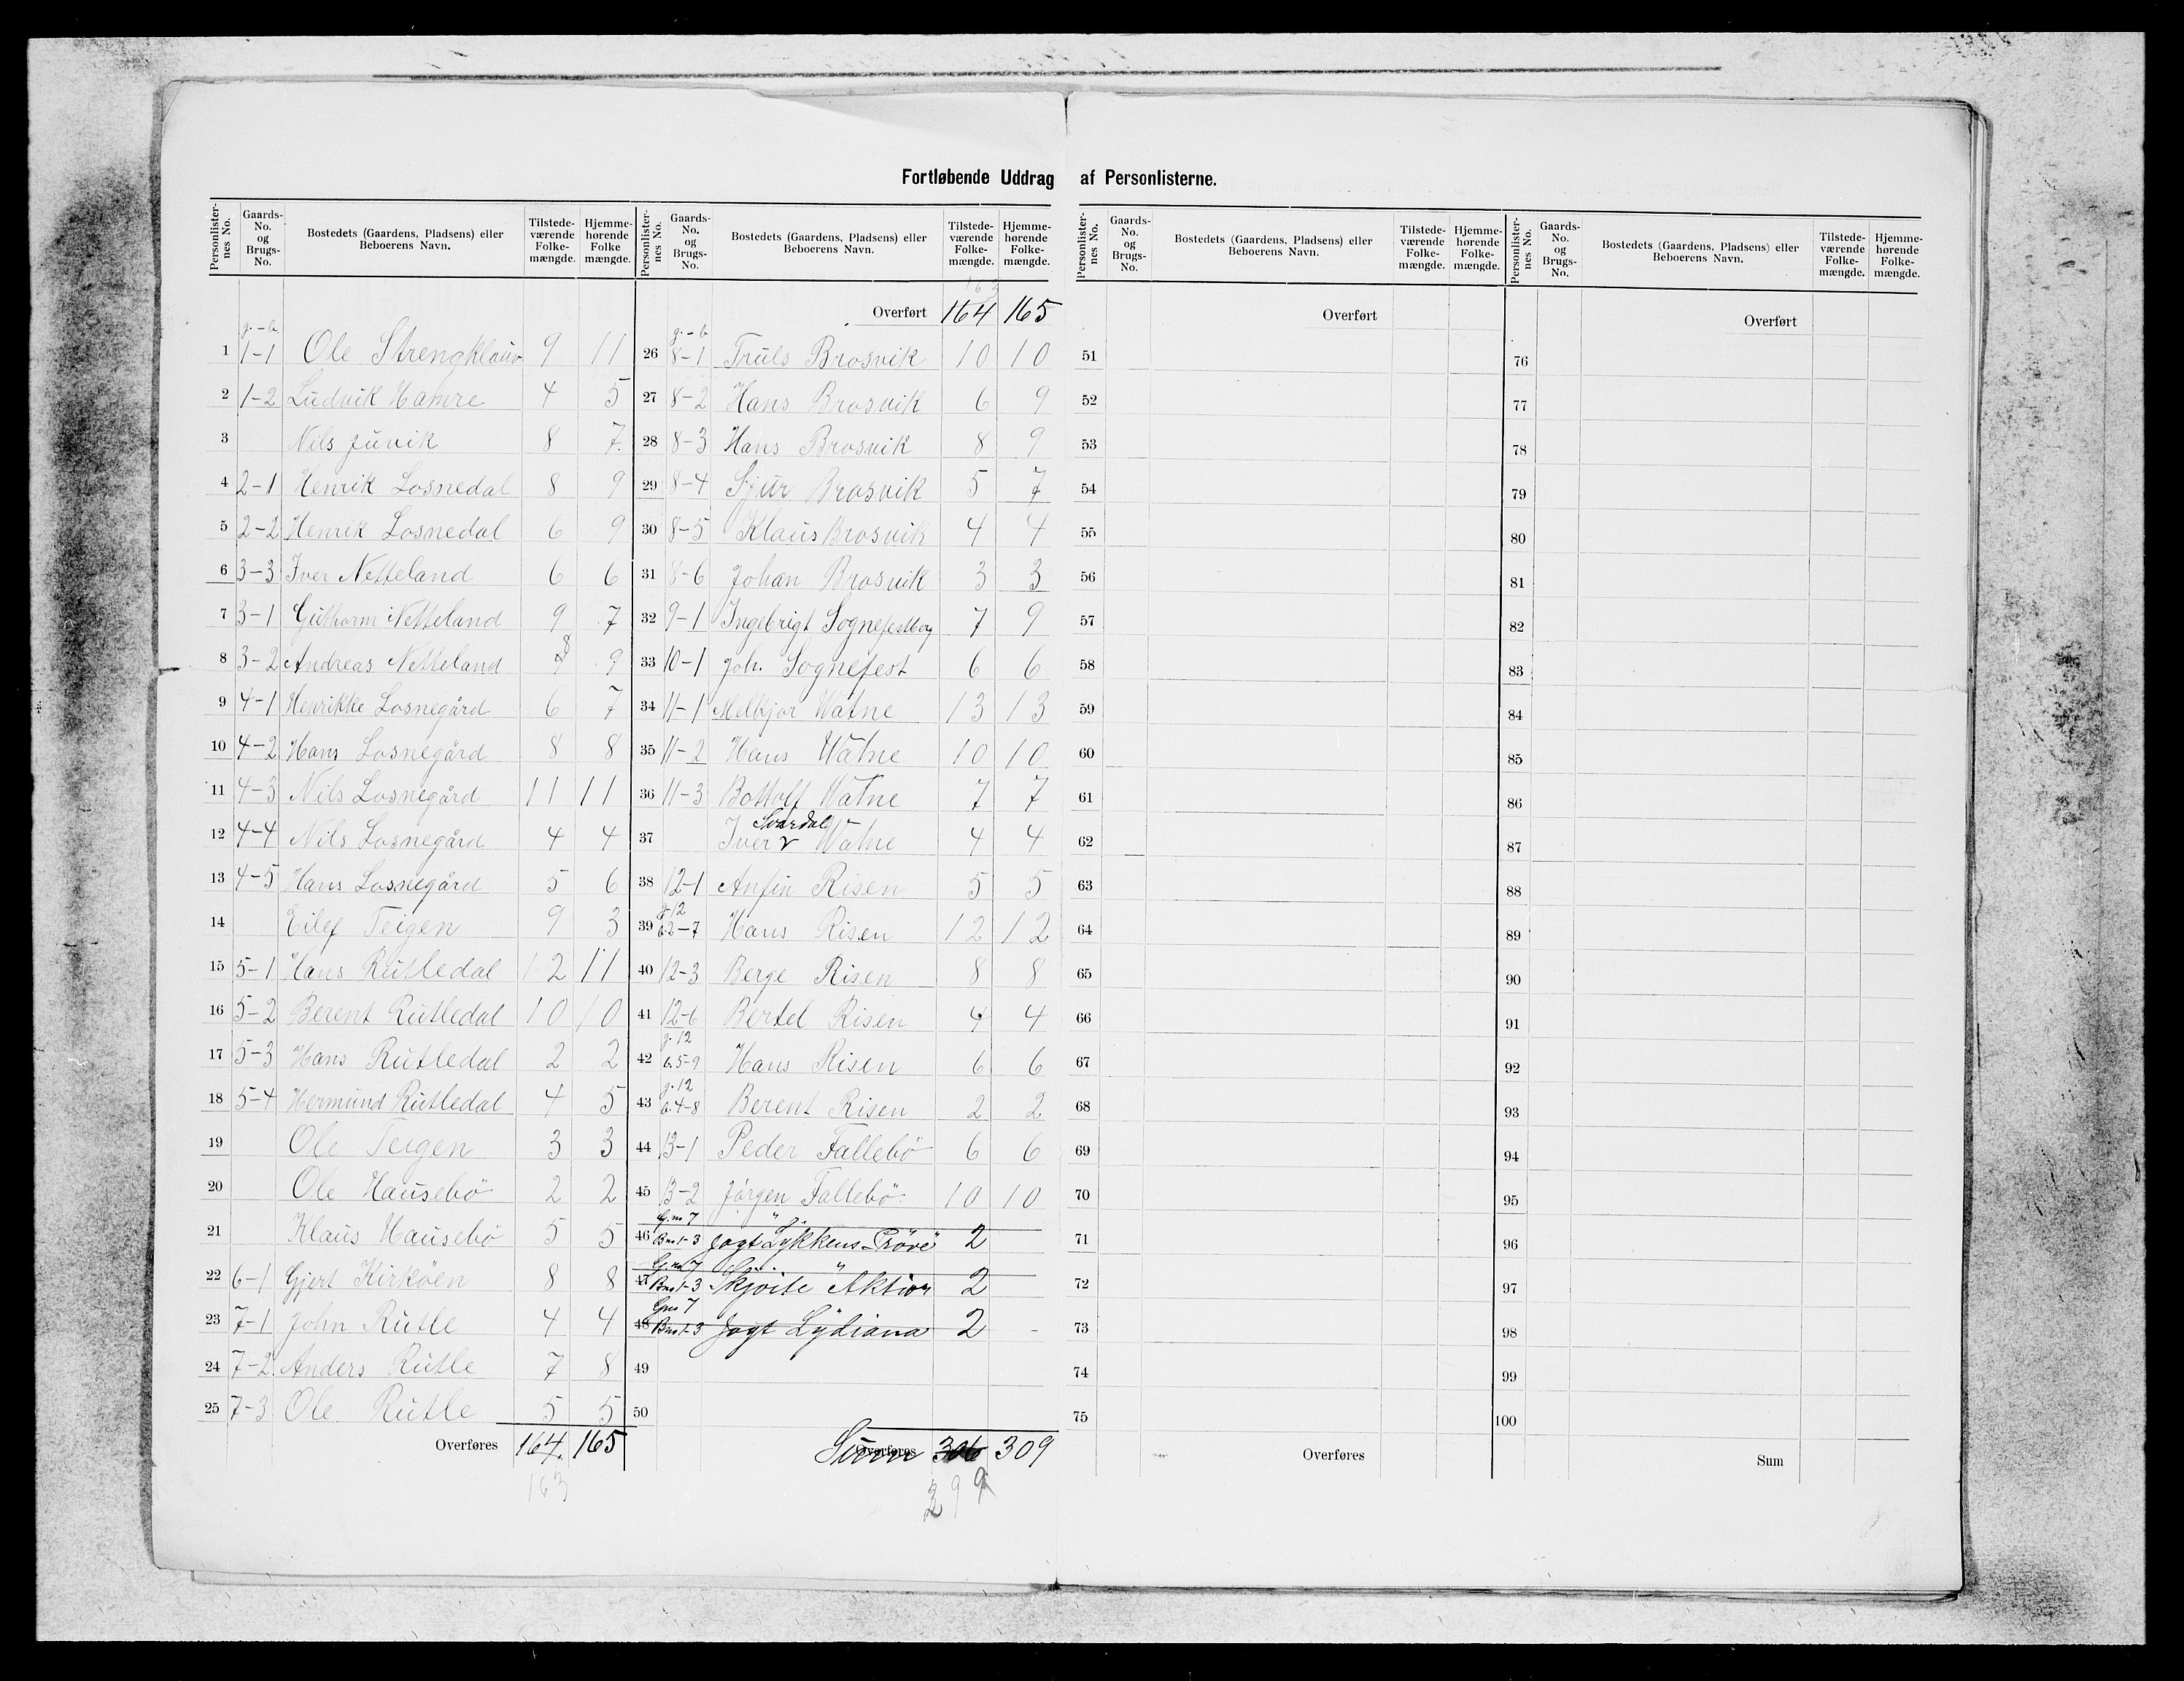 Fortløbende Uddrag af Personlisterne.
Personlisternes No. | Gaards-No. og Brugs-No. | Bostedets (Gaardens, Pladsens) eller Beboerens Navn. | Tilstedeværende Folkemængde. | Hjemmehørende Folke mængde.
g. - b.
1 1-1 Ole Strengklauv 9 11
2 1-2 Ludvik Hamre 4 5
3 Nils Juvik 8 7
4 2-1 Henrik Losnedal 8 9
5 2-2 Henrik Losnedal 6 9
6 3-3 Iver Netteland 6 6
7 3-1 Guthorm Netteland 9 7
8 3-2 Andreas Netteland 8 9
9 4-1 Henrikke Losnegård 6 7
10 4-2 Hans Losnegård 8 8
11 4-3 Nils Losnegård 11 11
12 4-4 Nils Losnegård 4 4
13 4-5 Hans Losnegård 5 6
14 Eilef Teigen 9 3
15 5-1 Hans Rutledal 12 11
16 5-2 Berent Rutledal 10 10
17 5-3 Hans Rutledal 2 2
18 5-4 Hermund Rutledal 4 5
19 Ole Teigen 3 3
20 Ole Hausebö 2 2
21 Klaus Hausebö 5 5
22 6-1 Gjert Kirköen 8 8
23 7-1 John Rutle 4 4
24 7-2 Anders Rutle 7 8
25 7-3 Ole Rutle 5 5
Overføres 164. 165
163
Personlisternes No. | Gaards-No. og Brugs-No. | Bostedets (Gaardens, Pladsens) eller Beboerens Navn. | Tilstedeværende Folkemængde. | Hjemmehørende Folkemængde.
163
Overført 164 165
g. - b
26 8-1 Truls Brosvik 10 10
27 8-2 Hans Brosvik 6 9
28 8-3 Hans Brosvik 8 9
29 8-4 Sjur Brosvik 5 7
30 8-5 Klaus Brosvik 4 4
31 8-6 Johan Brosvik 3 3
32 9-1 Ingebrigt Sognefestberg 7 9
33 10-1 Joh. Sognefest 6 6
34 11-1 Melkjor Watne 13 13
35 11-2 Hans Watne 10 10
36 11-3 Bottolf Watne 7 7
Svardal
37 Iver Watne 4 4
38 12-1 Anfin Risen 5 5
g. 12
39 b. 2-7 Hans Risen 12 12
40 12-3 Berge Risen 8 8
41 12-6 Bertel Risen 4 4
g. 12
42 b. 5-9 Hans Risen 6 6
g. 12
43 b. 4-8 Berent Risen 2 2
44 13-1 Peder Fallebö 6 6
45 13-2 Jörgen Fallebö 10 10
G. no 7
46 Bno 1-3 Jagt "Lykkens Pröve" 2
G. no 7
47 Bno 1-3 Skjöite "Aktiv" 2
Gno 7
48 Bno 1-3 Jagt Lydiana 2 -
49
50
Overføres Sum 306 309
299
Personlisternes No. | Gaards-No. og Brugs-No. | Bostedets (Gaardens, Pladsens) eller Beboerens Navn. | Tilstedeværende Folkemængde. | Hjemmehørende Folkemængde.
Overført
51
52
53
54
55
56
57
58
59
60
61
62
63
64
65
66
67
68
69
70
71
72
73
74
75
Overføres
Personlisternes No. | Gaards-No. og Brugs-No. | Bostedets (Gaardens, Pladsens) eller Beboerens Navn. | Tilstedeværende Folkemængde. | Hjemmehørende Folkemængde.
Overført
76
77
78
79
80
81
82
83
84
85
86
87
88
89
90
91
92
93
94
95
96
97
98
99
100
Sum